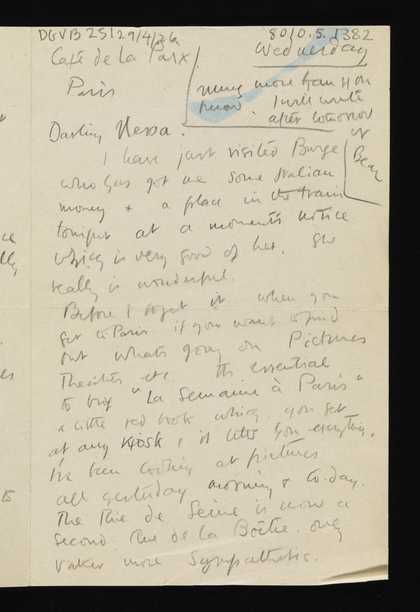 8010.5.1382
Café de la Paix
Wednesday
Paris
many more than you
know. I will write
after tomorrow
or
Bear
Darling Nessa.
I have just visited Burge
who has got me some Italian
money + a place in the train
tonight at a moment's notice
which is very good of her. She
really is wonderful.
Before I forget it when you
get to Paris if you want to find
out what's going on Pictures
Theatres etc. It's essential
to buy "La Semaine à Paris"
a little red book which you get
at any Kiosk & it tells you everything.
I've been looking at pictures
all yesterday morning & to-day.
The Rue de Seine is now a
second Rue de la Boëtie. only
rather more sympathetic.